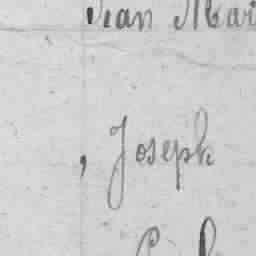 Jean Mari
, Joseph